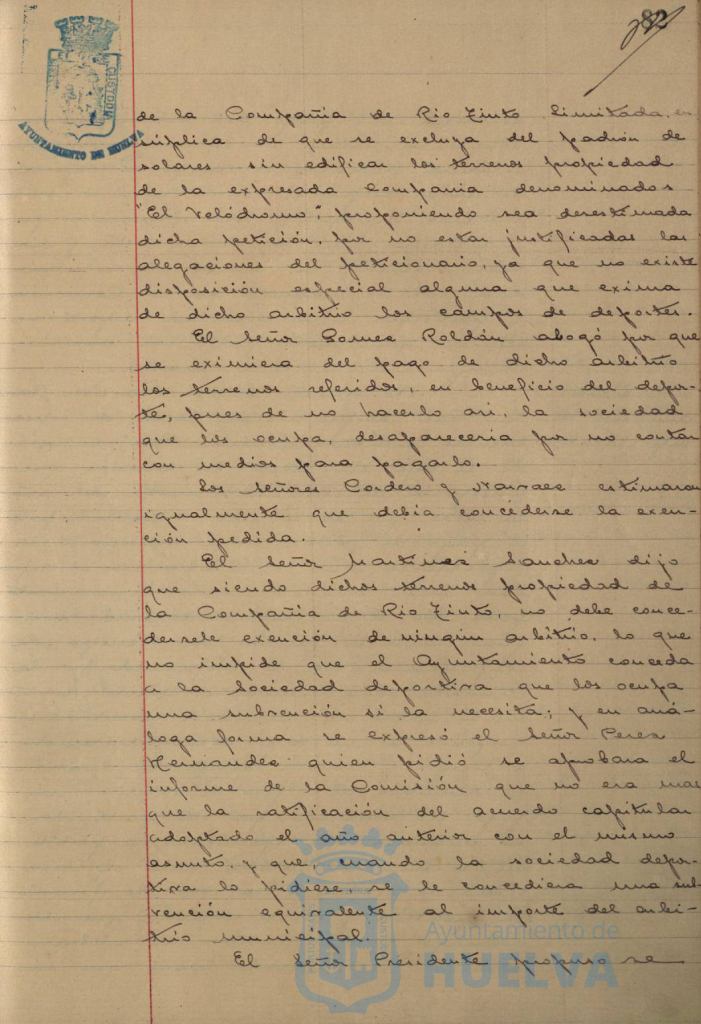 82
CUSTODIA
AYUNTAMIENTO DE HUELVA
de la Compañia de Rio Tinto Limitada, en
súplica de que se excluya del padrón de
solares sin edificar los terrenos propiedad
de la expresada Compañia denominados
"El Velódromo", proponiendo sea desestimada
dicha petición, por no estar justificadas las
alegaciones del peticionario, ya que no existe
disposición especial alguna que exima
de dicho arbitrio los campos de deportes.
El Señor Gomez Roldán abogó por que
se eximiera del pago de dicho arbitrio
los terrenos referidos, en beneficio del depor-
te, pues de no hacerlo asi, la sociedad
que los ocupa, desapareceria por no contar
con medios para pagarlo.
Los Señores Cordero y Narvaez estimaron
igualmente que debia concederse la exen-
ción pedida.
El Señor Martinez Sanchez dijo
que siendo dichos terrenos propiedad de
la Compañia de Rio Tinto, no debe conce-
dersele exención de ningún arbitrio, lo que
no impide que el Ayuntamiento conceda
a la Sociedad deportiva que los ocupa
una subvención si la necesita; y en aná-
loga forma se expresó el Señor Perez
Hernandez quien pidió se aprobara el
informe de la Comisión que no era mas
que la ratificación del acuerdo capitular
adoptado el año anterior con el mismo
asunto, y que, cuando la sociedad depor-
tiva lo pidiese, se le concediera una sub-
vención equivalente al importe del arbi-
trio municipal.
El Señor Presidente propuso se
Ayuntamiento de
HUELVA